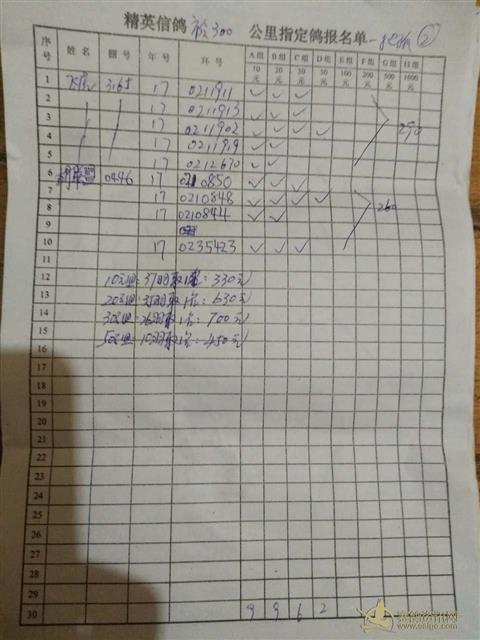 精英信鸽 300 公里指定鸽报名单 ②
序号 姓名 棚号 年号 环号 A组 B组 C组 D组 E组 F组 G组 H组
10元 20元 30元 50元 100元 200元 500元 1000元
1 3165 17 0211911 ✓ ✓ ✓
2 17 0211913 ✓ ✓ ✓
3 17 0211902 ✓ ✓ ✓ ✓ 290
4 17 0211919 ✓ ✓
5 17 0212670 ✓ ✓
6 0446 17 0210850 ✓ ✓ ✓
7 17 0210848 ✓ ✓ ✓ ✓
8 17 0210844 ✓ ✓ 260
9
10 17 0235423 ✓ ✓ ✓
11
12 10元 37羽 330元
13 20元 35羽 630元
14 30元 26羽 700元
15 50元 10羽 450元
16
17
18
19
20
21
22
23
24
25
26
27
28
29
30 9 9 6 2